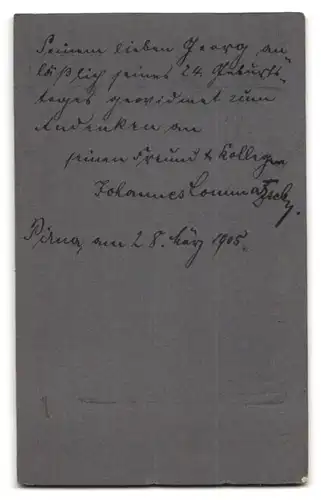 Seinem lieben Georg an-
läßlich seines 24. Geburts-
tages gewidmet zum
Andenken an
seinen Freund & Kollegen
Johannes Lommatzsch.
Pirna, am 28. März 1905.